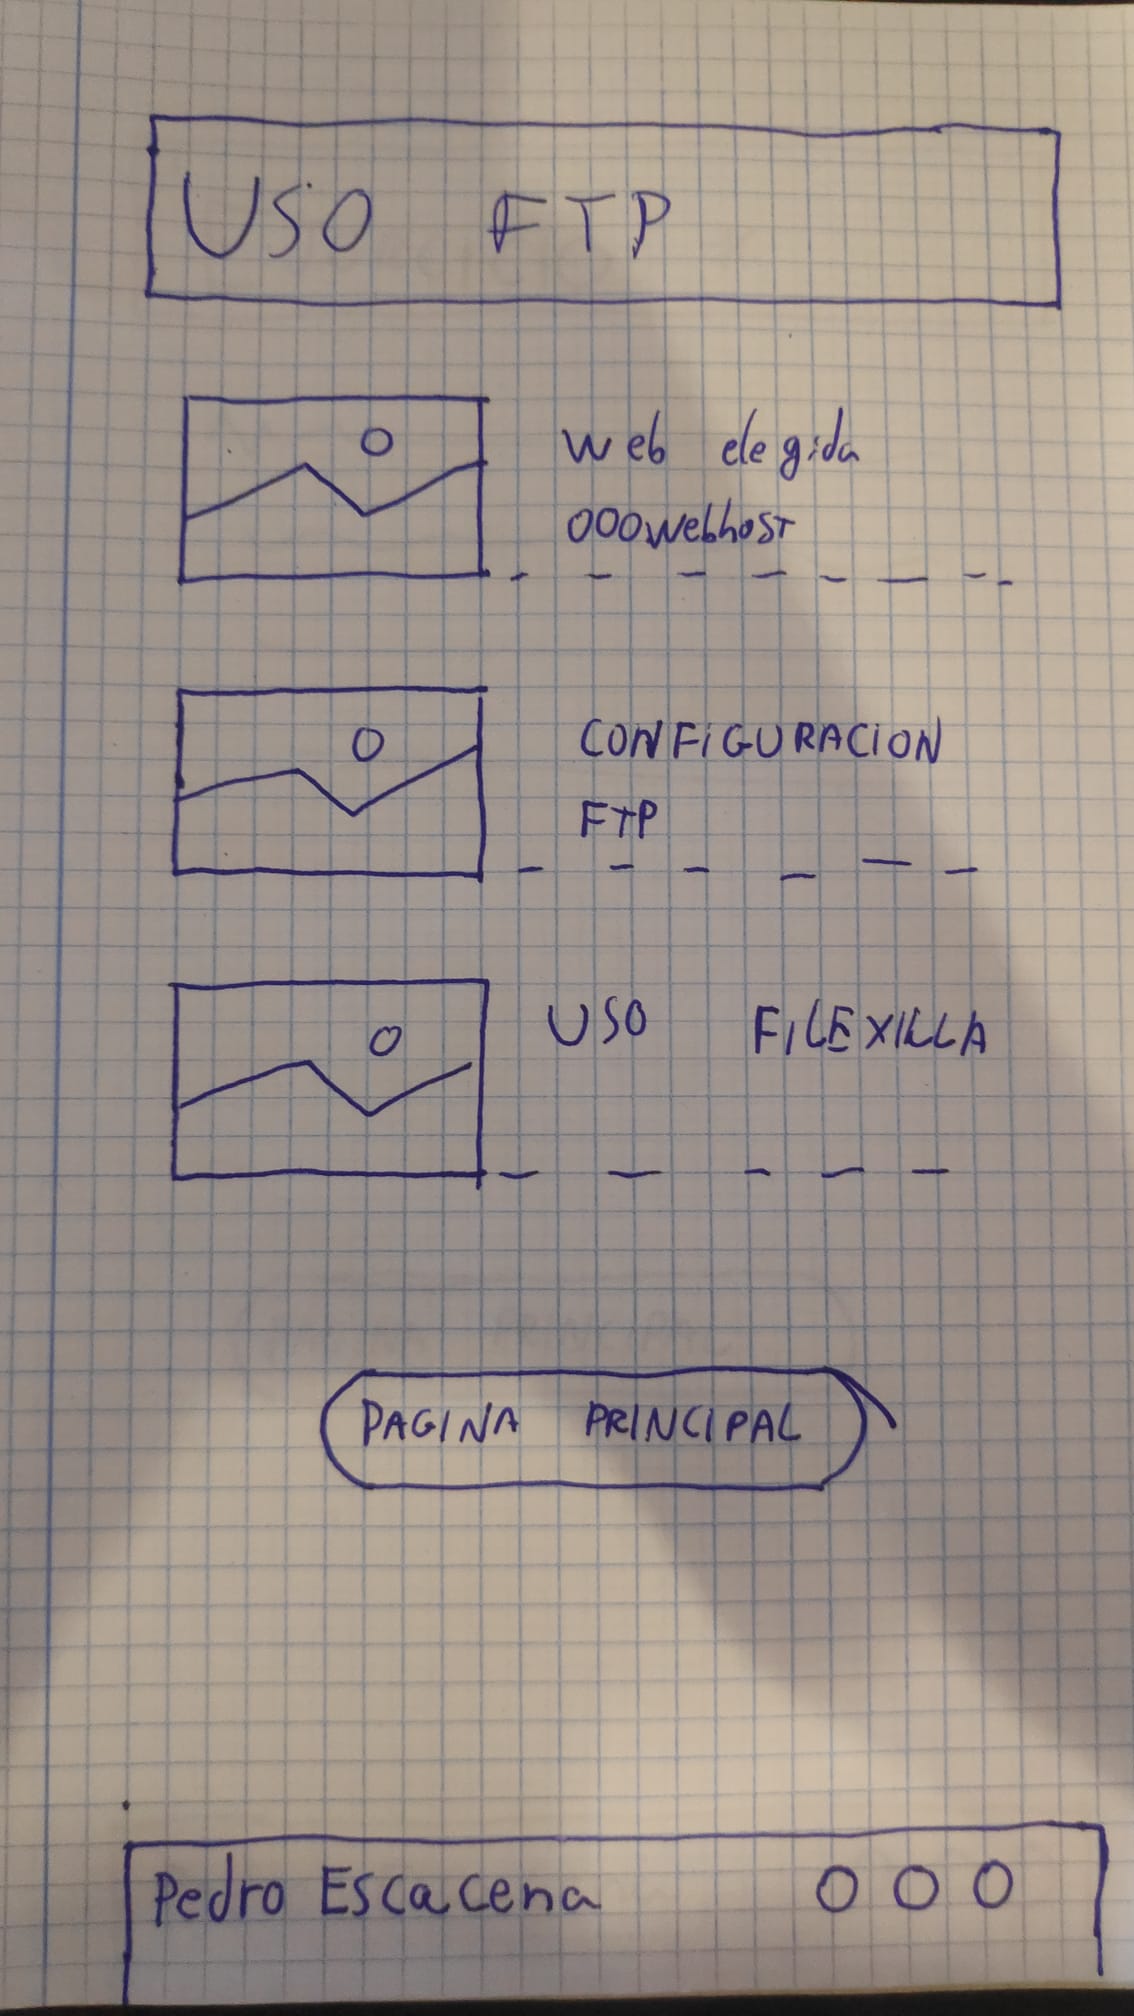 USO FTP
web elegida
000webhost
CONFiGURACION
FTP
USO FiLEXILLA
PAGINA PRINCIPAL
Pedro Escacena